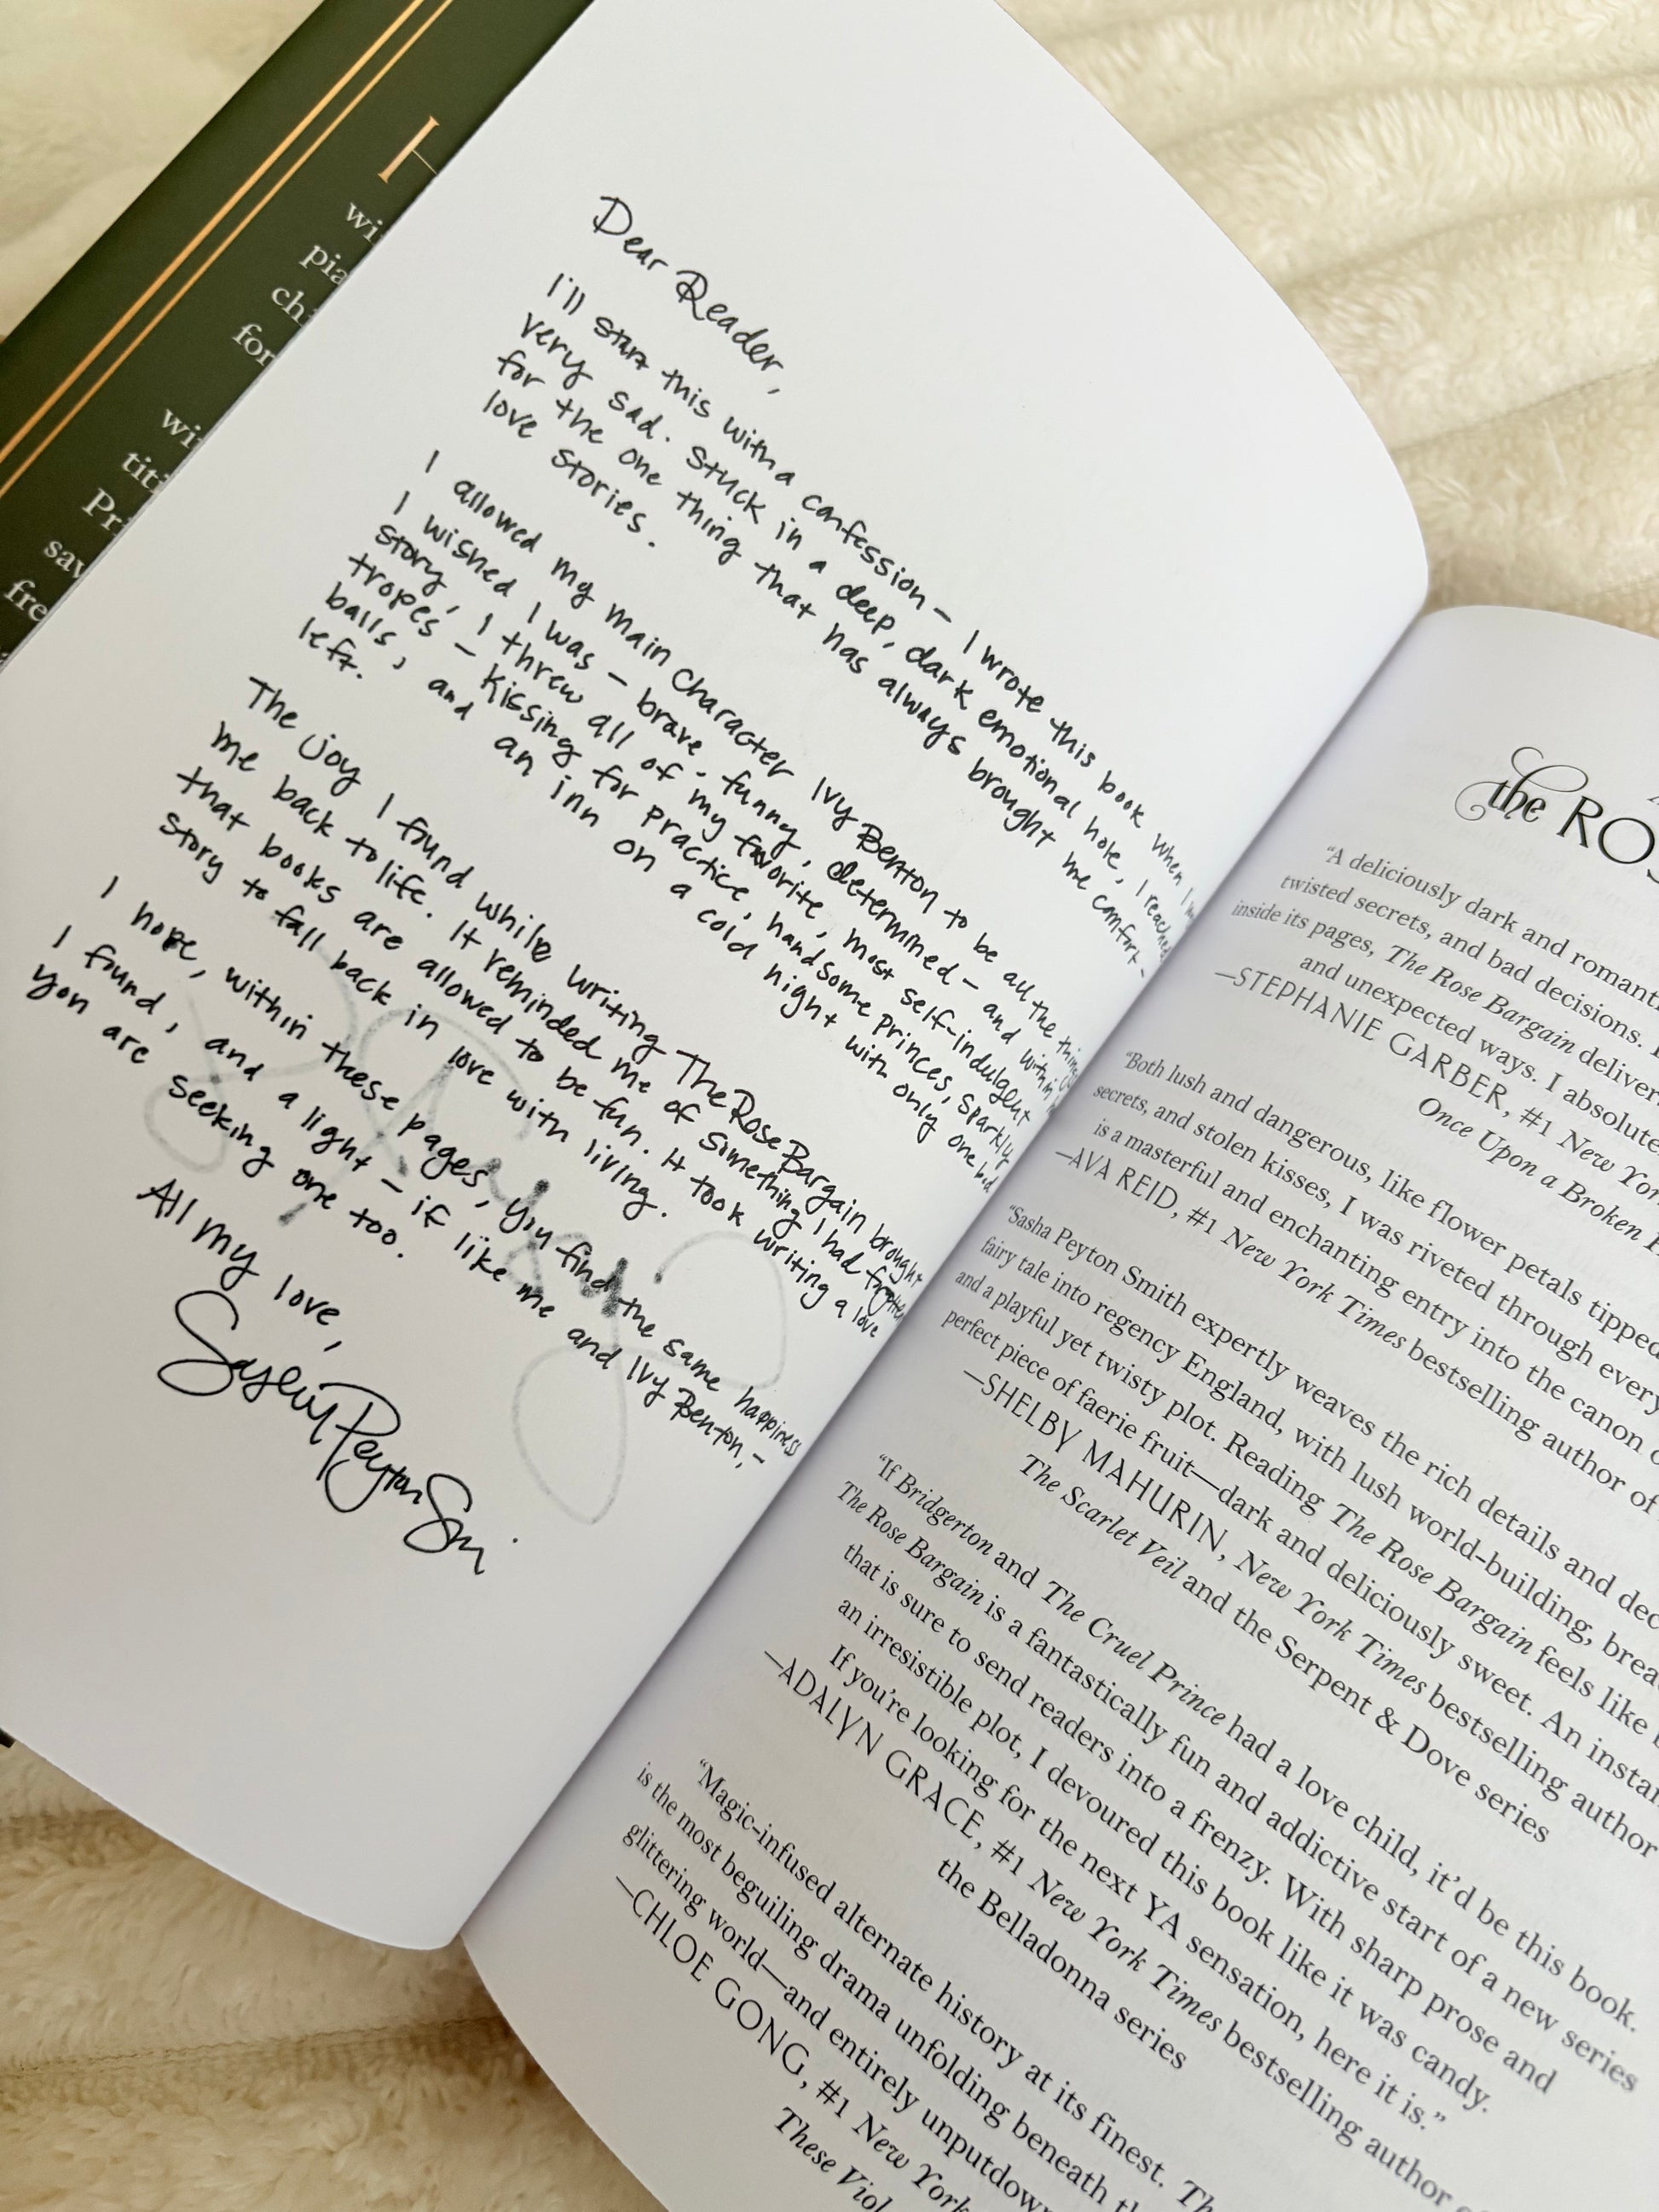 H
wi
pia
ch
for
wi
tit
Pri
sav
fre
Dear Reader,
I'll start this with a confession – I wrote this book when I
very sad. Stuck in a deep, dark emotional hole, I reached
for the one thing that has always brought me comfort –
love stories.
I allowed my main character Ivy Benton to be all the things
I wished I was – brave, funny, determined – and within
story, I threw all of my favorite, most self-indulgent
tropes – kissing for practice, handsome princes, sparkly
balls, and an inn on a cold night with only one bed
left.
The joy I found while writing The Rose Bargain brought
me back to life. It reminded me of something I had forgotten
that books are allowed to be fun. It took writing a love
story to fall back in love with living.
I hope, within these pages, you find the same happiness
I found, and a light – if like me and Ivy Benton, –
you are seeking one too.
All my love,
Sasha Peyton Smith
the ROS
“A deliciously dark and romanti
twisted secrets, and bad decisions.
inside its pages, The Rose Bargain deliver
and unexpected ways. I absolute
—STEPHANIE GARBER, #1 New Yor
Once Upon a Broken H
“Both lush and dangerous, like flower petals tipped
secrets, and stolen kisses, I was riveted through every
is a masterful and enchanting entry into the canon o
—AVA REID, #1 New York Times bestselling author of
“Sasha Peyton Smith expertly weaves the rich details and dec
fairy tale into regency England, with lush world-building, brea
and a playful yet twisty plot. Reading The Rose Bargain feels like
perfect piece of faerie fruit—dark and deliciously sweet. An instan
—SHELBY MAHURIN, New York Times bestselling author
The Scarlet Veil and the Serpent & Dove series
“If Bridgerton and The Cruel Prince had a love child, it’d be this book.
The Rose Bargain is a fantastically fun and addictive start of a new series
that is sure to send readers into a frenzy. With sharp prose and
an irresistible plot, I devoured this book like it was candy.
If you’re looking for the next YA sensation, here it is.”
—ADALYN GRACE, #1 New York Times bestselling author of
the Belladonna series
“Magic-infused alternate history at its finest. Th
is the most beguiling drama unfolding beneath th
glittering world—and entirely unputdown
—CHLOE GONG, #1 New York
These Viol